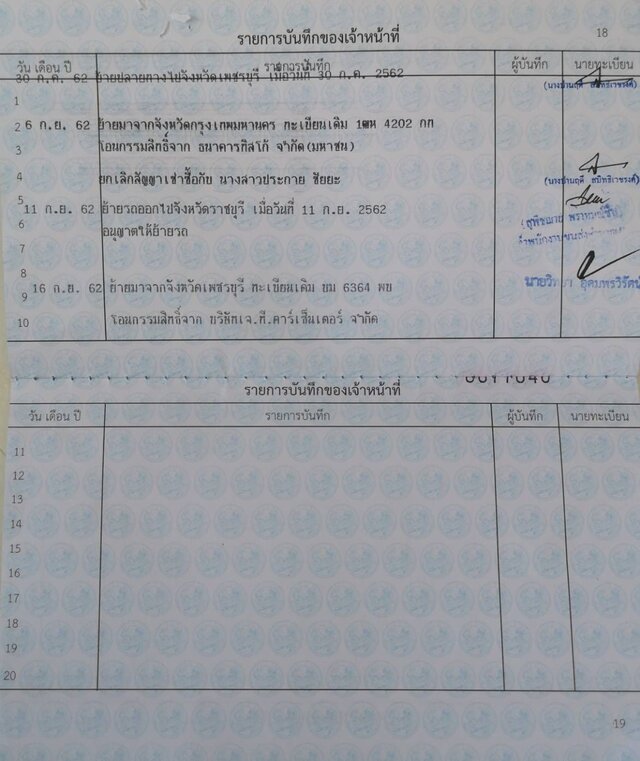 18
รายการบันทึกของเจ้าหน้าที่
วัน เดือน ปี รายการบันทึก ผู้บันทึก นายทะเบียน
30 ก.ค. 62 ย้ายปลายทางไปจังหวัดเพชรบุรี เมื่อวันที่ 30 ก.ค. 2562
1
2 6 ก.ย. 62 ย้ายมาจากจังหวัดกรุงเทพมหานคร ทะเบียนเดิม 4202 กท
3 โอนกรรมสิทธิ์จาก ธนาคารทิสโก้ จำกัด(มหาชน)
4 ยกเลิกสัญญาเช่าซื้อกับ นางสาวประกาย ชัยยะ
5
11 ก.ย. 62 ย้ายรถออกไปจังหวัดราชบุรี เมื่อวันที่ 11 ก.ย. 2562
6 อนุญาตให้ย้ายรถ
7
8
16 ก.ย. 62 ย้ายมาจากจังหวัดเพชรบุรี ทะเบียนเดิม ขม 6364 พบ
9
นายวิทยา อุดมทรวิรัตน์
10 โอนกรรมสิทธิ์จาก บริษัทเจ.ที.คาร์เซ็นเตอร์ จำกัด
รายการบันทึกของเจ้าหน้าที่
วัน เดือน ปี รายการบันทึก ผู้บันทึก นายทะเบียน
11
12
13
14
15
16
17
18
19
20
19